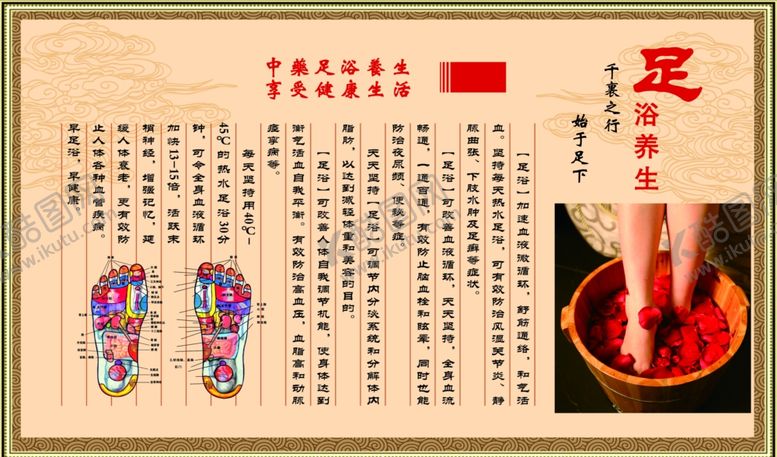 足
浴养生
千裏之行
始于足下
中藥足浴養生
享受健康生活
【足浴】加速血液微循环，舒筋通络，和气活
血。坚持每天热水足浴，可有效防治风湿关节炎、静
脉曲张、下肢水肿及足癣等症状。
【足浴】可改善血液循环，天天坚持，全身血流
畅通，一通百通，有效防止脑血栓和眩晕，同时也能
防治夜尿频、便秘等症。
天天坚持【足浴】可调节内分泌系统和分解体内
脂肪，以达到减轻体重和美容的目的。
【足浴】可改善人体自我调节机能，使身体达到
衡气活血自我平衡。有效防治高血压，血脂高和动脉
每天坚持用40℃-
45℃的热水足浴30分
钟，可令全身血液循环
加快13-15倍，活跃末
梢神经，增强记忆，延
缓人体衰老，更有效防
止人体各种血管疾病。
早足浴，早健康
酷图网
www.ikutu.com